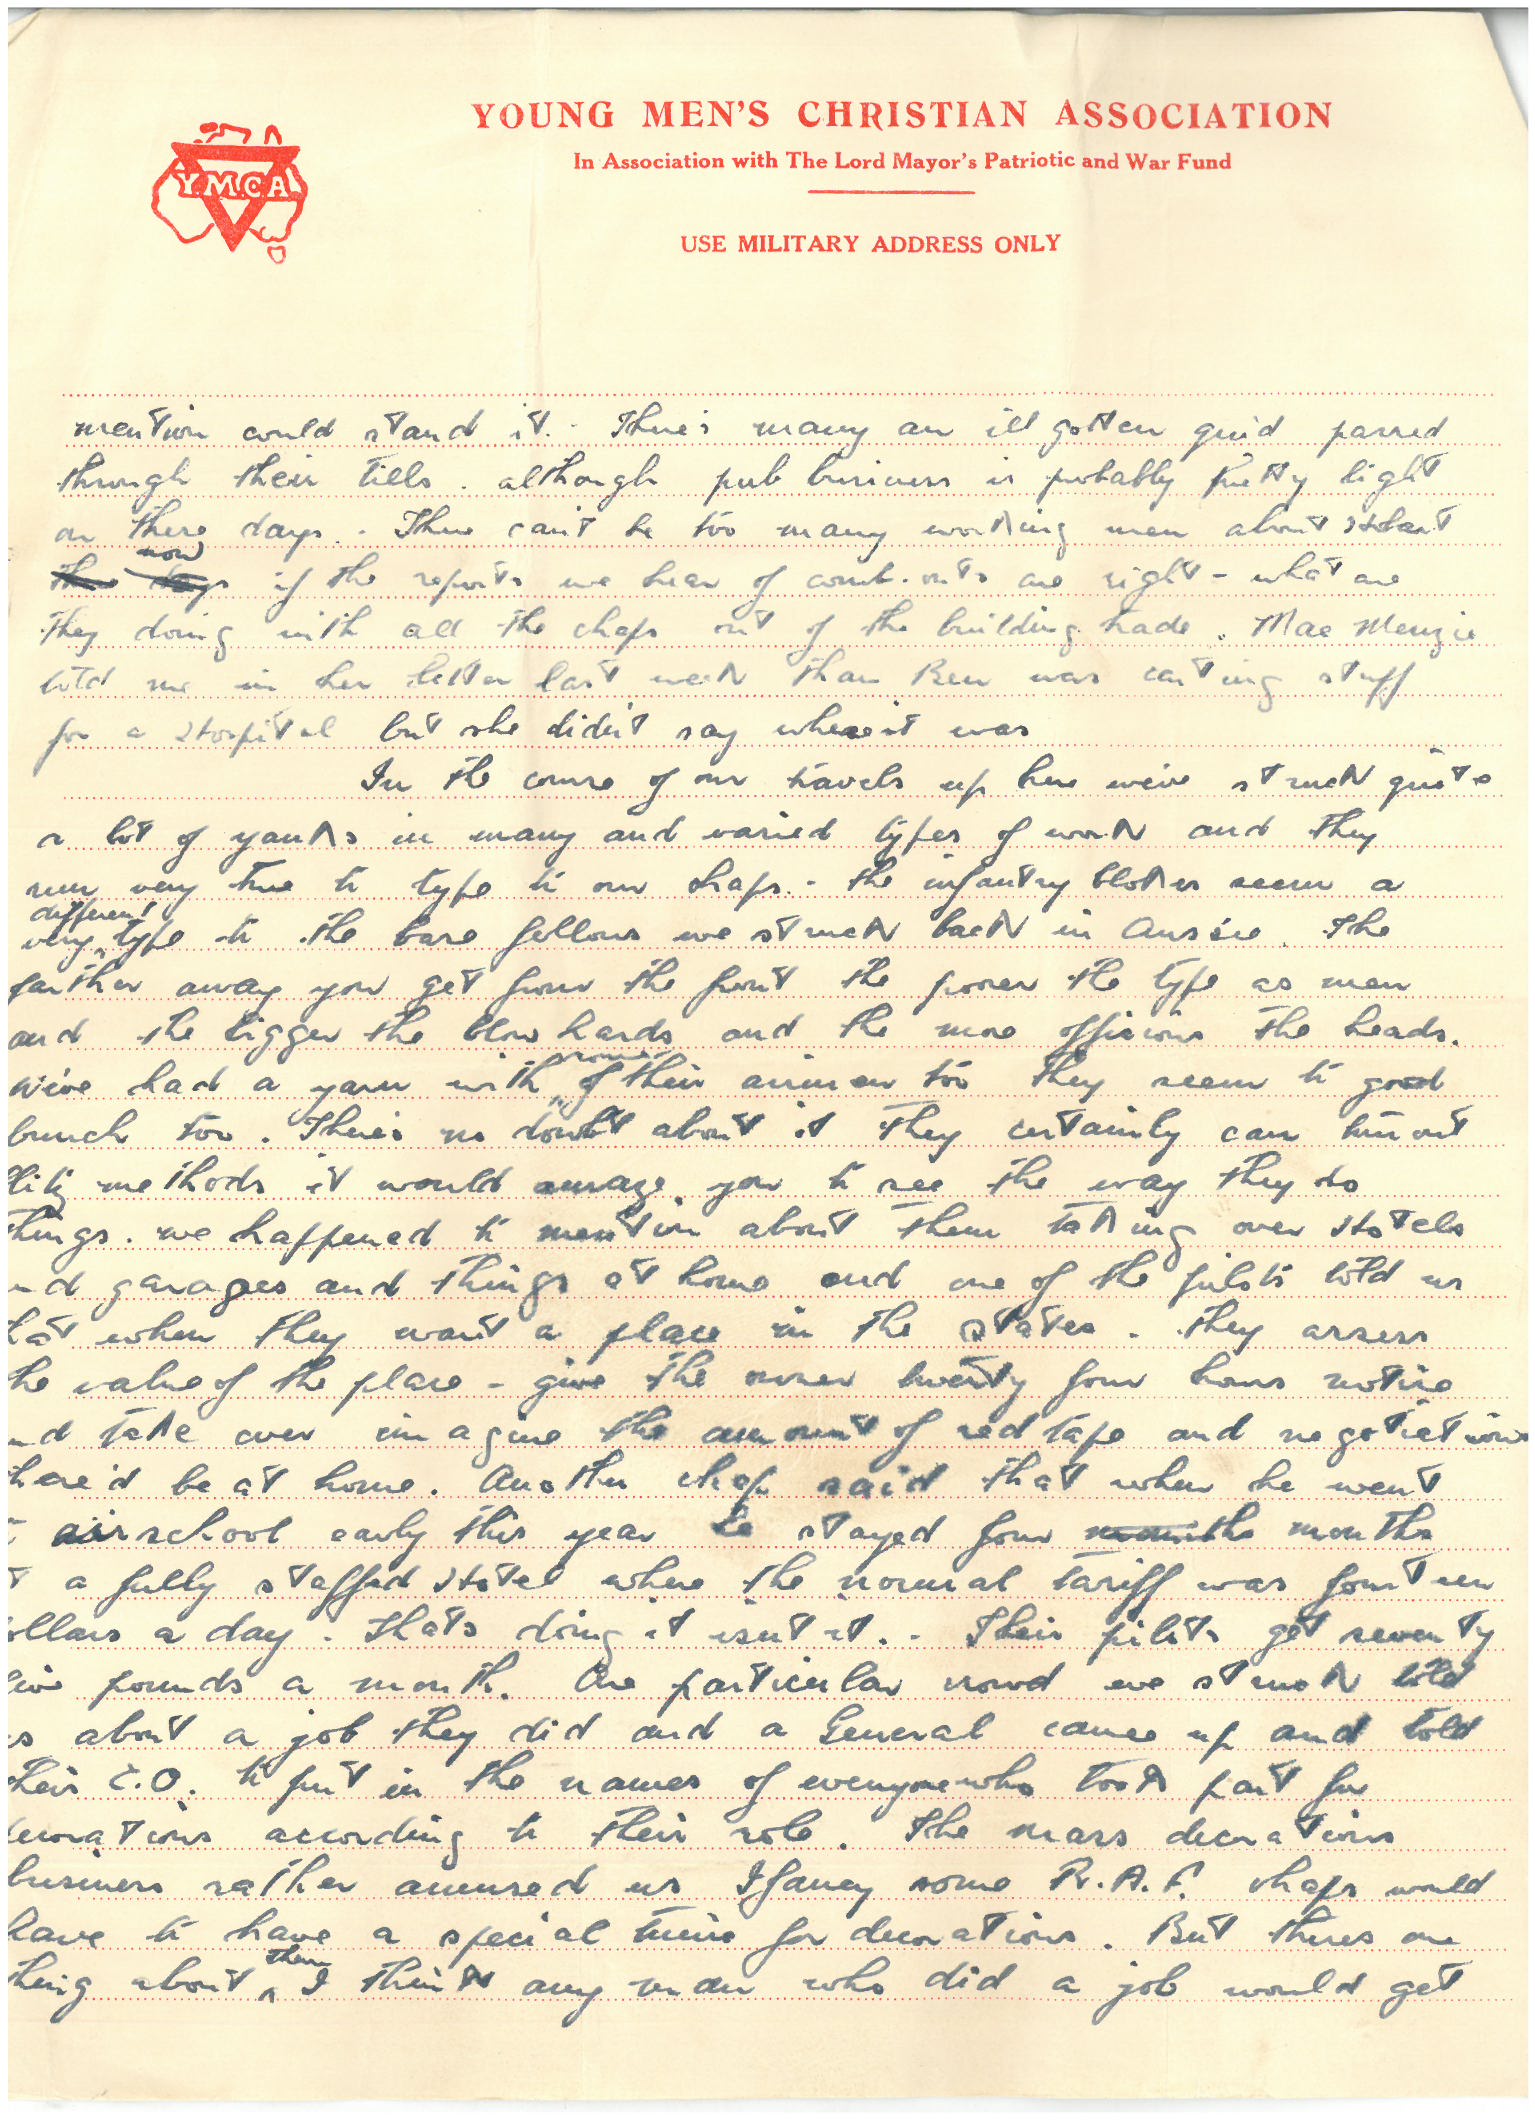 YOUNG MEN'S CHRISTIAN ASSOCIATION
In Association with The Lord Mayor's Patriotic and War Fund
Y.M.C.A.
USE MILITARY ADDRESS ONLY
mention could stand it. - There's many an ill gotten quid passed
through their tills. although pub business is probably pretty light
on these days. - There can't be too many working men about Hobart
the days now if the reports we hear of comb-outs are right - what are
They doing with all the chaps out of the building trade. Mac Menzie
told me in her letter last week than Ben was carting stuff
for a Hospital but she didn't say where it was
In the course of our travels up here we've struck quite
a lot of yanks in many and varied types of work and they
run very true to type to our chaps. - the infantry blokes seem a
very different type to the base fellows we struck back in Aussie. The
farther away you get from the front the poorer the type as men
and the bigger the blow hards and the more officious the heads.
We've had a yarn with some of their airmen too they seem to good
bunch too. There's no doubt about it they certainly can turn out
methods it would amaze you to see the way they do
things. we happened to mention about them taking over Hotels
nd garages and things at home and one of the pilots told us
hat when they want a place in the states. they assess
he value of the place - give the owner twenty four hours notice
nd take over imagine the amount of red tape and negotiations
here'd be at home. Another chap said that when he went
air school early this year he stayed four months months
t a fully staffed Hotel where the normal tariff was fourteen
ollars a day. Thats doing it isn't it. - Their pilots get seventy
five pounds a month. One particular crowd we struck told
s about a job they did and a General came up and told
their C.O. to put in the names of everyone who took part for
decorations according to their role. The mass decorations
business rather amused us I fancy some R.A.F. chaps would
have to have a special tunic for decorations. But theres one
thing about them I think any man who did a job would get